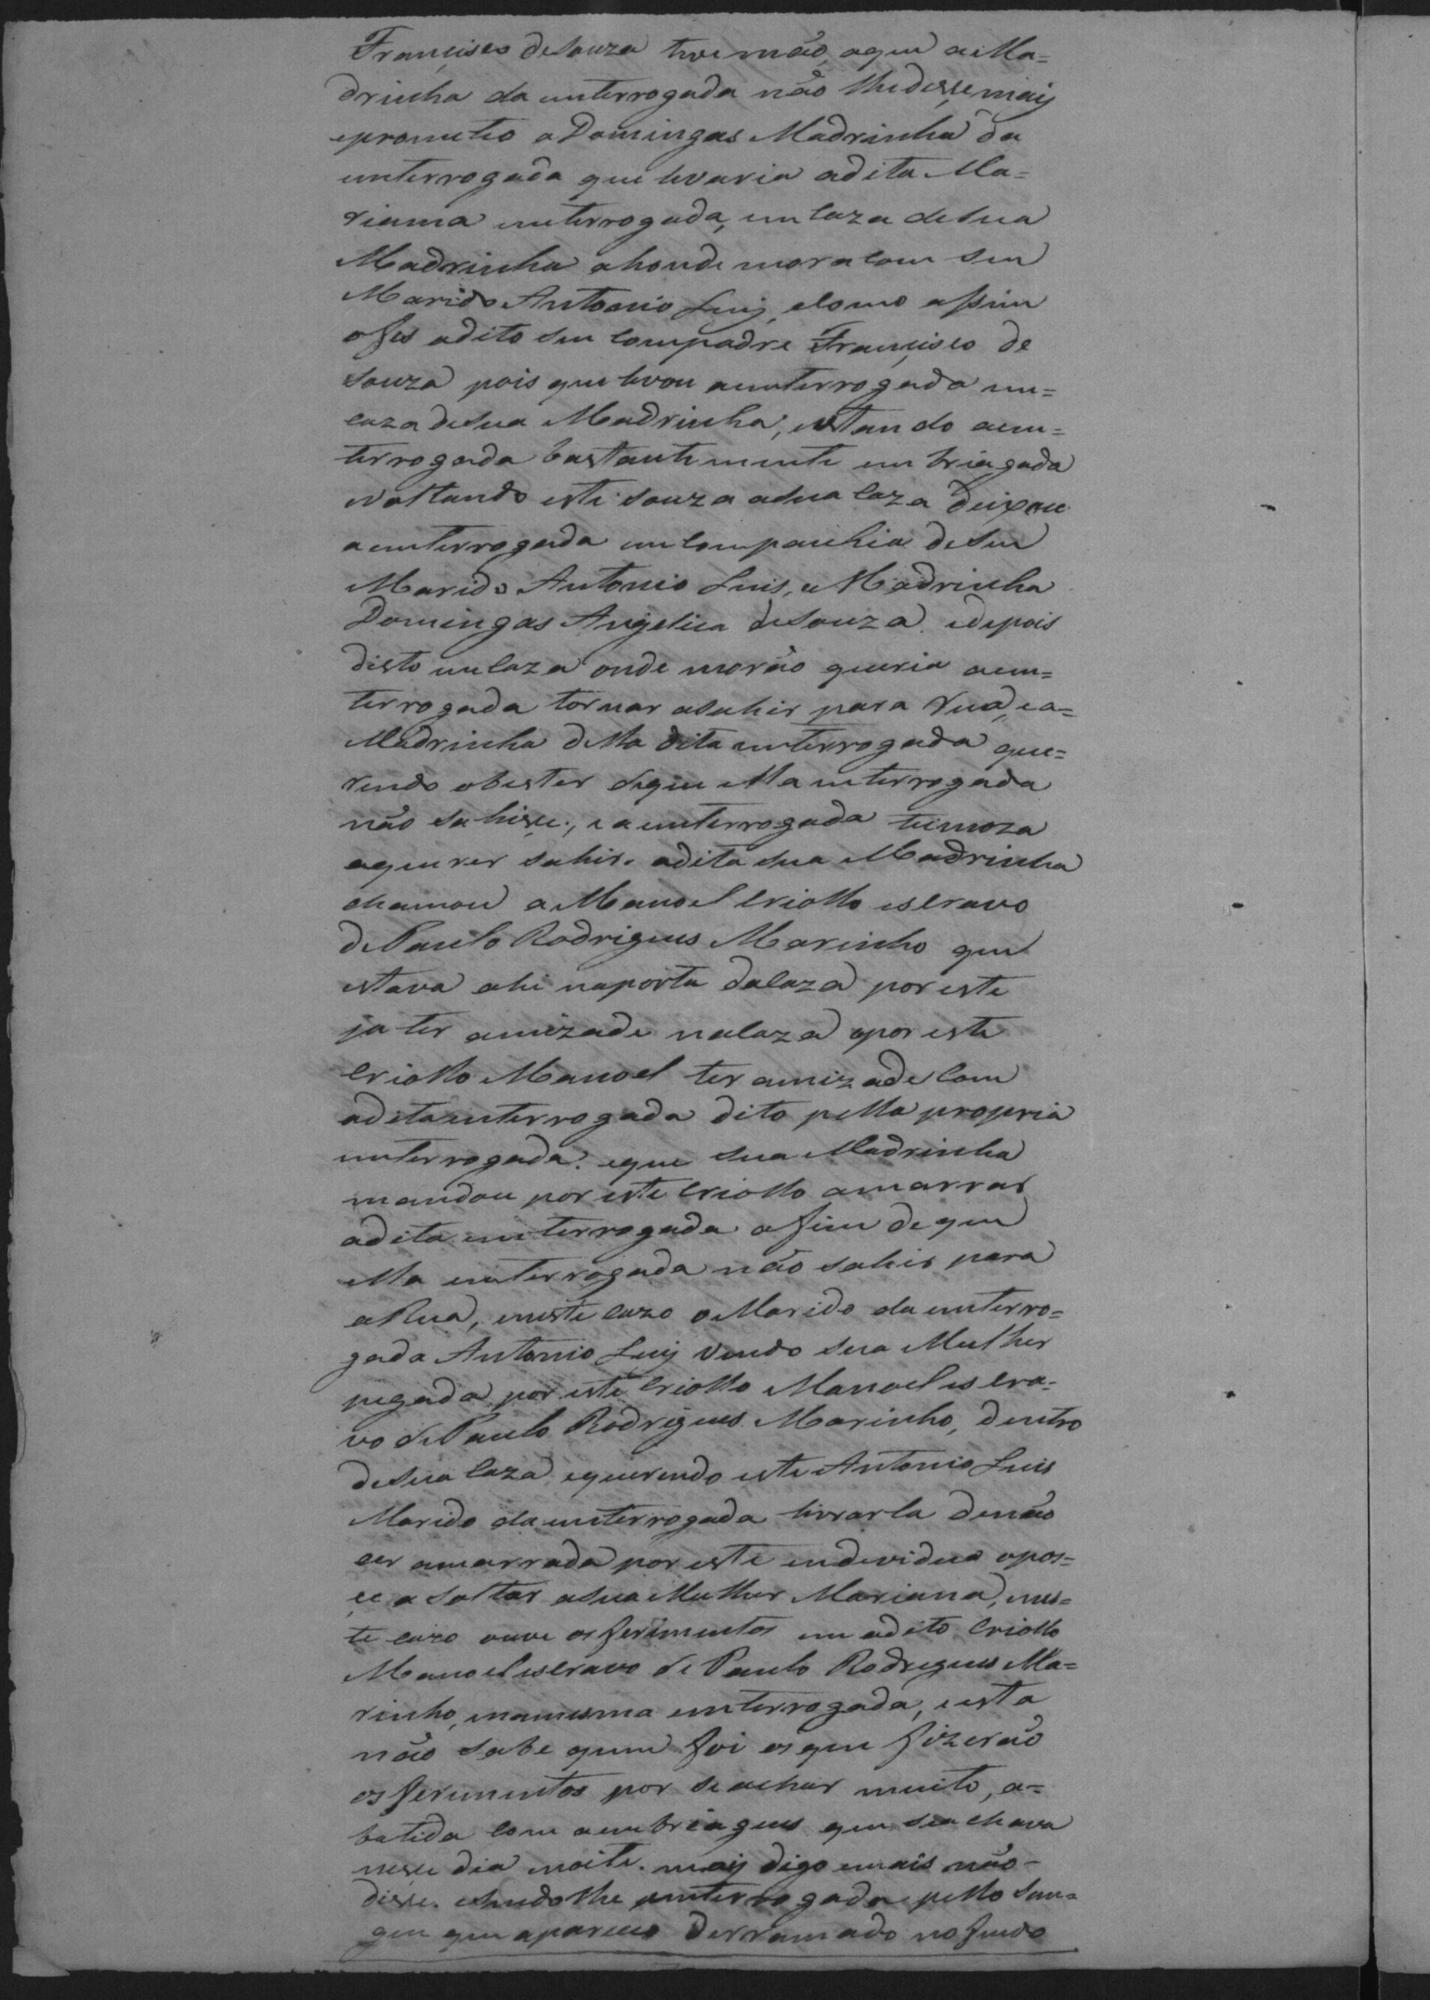 Francisco deSouza teve mão, aque a Ma=
drinha da enterrogada não lhe desse, maiz
eprometeo a Domingas Madrinha da
enterrogada que levaria adita Ma=
rianna enterrogada, em caza desua
Madrinha ahonde mora com seu
Marido Antonio Luiz, ecomo assim
ofes adito seu compadre Francisco de
Souza pois que levou aenterrogada em=
caza desua Madrinha, estando aem=
terrogada bastantemente embriagada
evoltando este Souza asua caza deixou
aenterrogada emcompanhia deseu
Marido Antonio Luis, e Madrinha
Domingas Angelica deSouza. edepois
disto emcaza onde morão queria aem=
terrogada tornar asahir para Rua, ea=
Madrinha della dita enterrogada que=
rendo obester deque ella enterrogada
não sahisse, e aenterrogada teimoza
aquerer sahir. adita sua Madrinha
chamou a Manoel criollo escravo
dePaulo Rodrigues Marinho que
estava ahi naporta dacaza por este
ja ter amizade nacaza epor este
criollo Manoel ter amizade com
aditaenterrogada dito pella propria
enterrogada. eque sua Madrinha
mandou por este criollo amarrar
adita enterrogada afim deque
ella enterrogada não sahir para
aRua, eneste cazo oMarido da enterro=
gada Antonio Luiz vendo sua Mulher
pegada por este criollo Manoel escra=
vo dePaulo Rodrigues Marinho, dentro
desua caza equerendo este Antonio Luis
Marido da enterrogada livrarla denão
ser amarrada por este endividuo opos=
se a soltar asua Mulher Mariana, nes=
te cazo ouve osferimentos em adito criollo
Manoel escravo de Paulo Rodrigues Ma=
rinho, enamesma enterrogada, eesta
não sabe quem foi osque fizerão
osferimentos por seachar muito, a=
batida com aembriagues que seachava
nesse dia enoite. maiz digo emais não=
disse. esendolhe enterrogada pello San=
gue que apareceo derramado nofundo